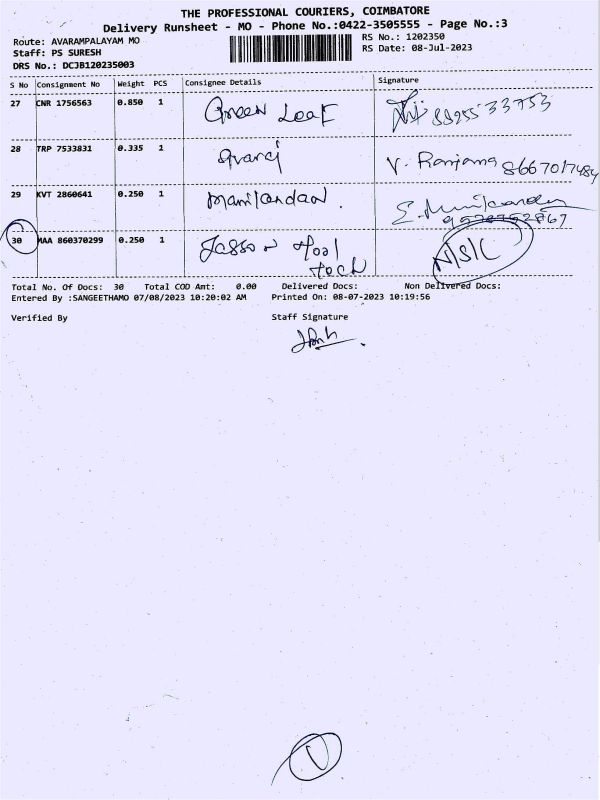 THE PROFESSIONAL COURIERS, COIMBATORE
Delivery Runsheet - MO - Phone No.:0422-3505555 - Page No.:3
Route: AVARAMPALAYAM MO
RS No.: 1202350
Staff: PS SURESH
RS Date: 08-Jul-2023
DRS No.: DCJB120235003
S No Consignment No Weight PCS Consignee Details Signature
27 CNR 1756563 0.850 1 Green Leaf 33753
28 TRP 7533831 0.335 1 V. Ranjama 8667017484
29 KVT 2860641 0.250 1 Manikandan.
30 MAA 860370299 0.250 1 Jasson Tool N/S/L
tech
Total No. Of Docs: 30 Total COD Amt: 0.00 Delivered Docs: Non Delivered Docs:
Entered By :SANGEETHAMO 07/08/2023 10:20:02 AM Printed On: 08-07-2023 10:19:56
Verified By Staff Signature